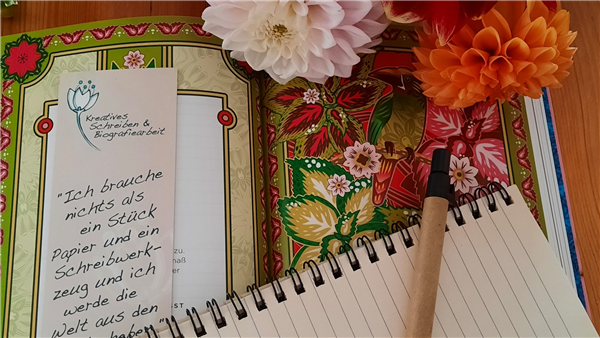 Kreatives
Schreiben &
Biografiearbeit
"Ich brauche
nichts als
ein Stück
Papier und ein
Schreibwerk-
zeug und ich
werde die
Welt aus den
haben"
zu.
maß
er
ST